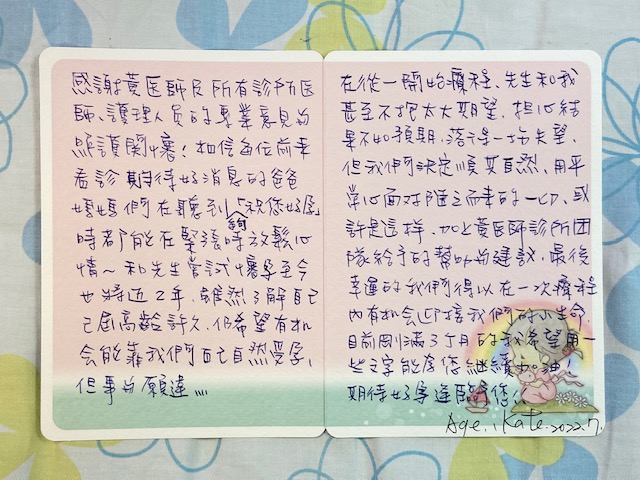 感謝黃医師及所有診所医
師、護理人员的專業意見与
照護関懷！相信每位前来
看診期待好消息的爸爸
媽媽們在聽到「祝您好孕」
時都能夠在緊張時放鬆心
情~和先生嘗試懷孕至今
也將近2年，雖然了解自己
已屆高齡許久，但希望有机
会能靠我們自己自然受孕，
但事与願違....
在從一開始療程，先生和我
甚至不抱太大期望，担心結
果不如預期，落得一場失望，
但我們決定順其自然，用平
常心面对随之而来的一切，或
許是這样，加上黃医師診所团
隊給予的幫助与建議，最後
幸運的我們得以在一次療程
內有机会迎接我們的小生命，
目前剛滿3个月的我希望用一
些文字能为您繼續加油！
期待好孕追隨您！
Age. Kate. 2022.7.